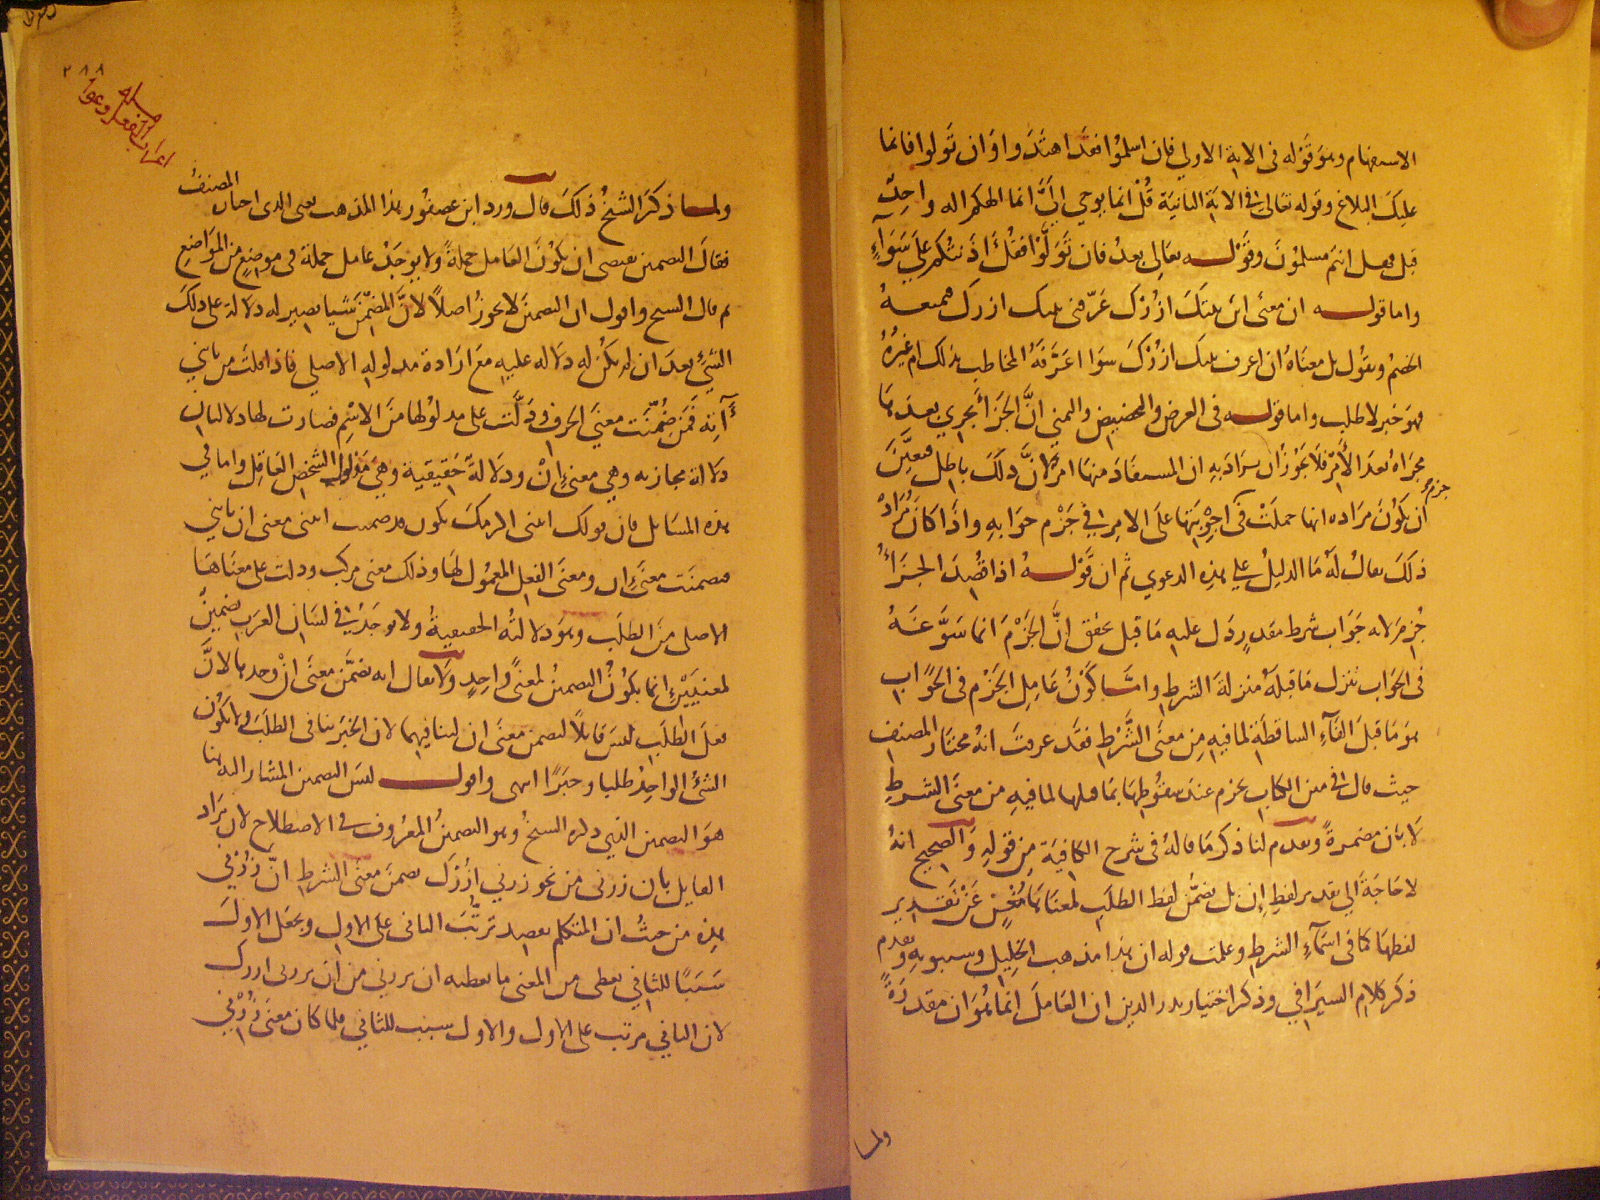 الاستفهام وهو قوله فى الاية الاولى فان اسلموا فقد اهتدوا وان تولوا فانما
عليك البلاغ وقوله تعالى فى الاية الثانية قل انما يوحي الىّ انما الهكم اله واحد
فهل انتم مسلمون وقوله تعالى بعد فان تولوا فقل اذنتكم على سواء
واما قوله ان معنى اين بيتك ازرك عرّفنى بيتك ازرك فيمنعه
الخصم ويقول بل معناه ان اعرف بيتك ازرك سوا اعرفه المخاطب بذلك ام غيره
فهو خبر لا طلب واما قوله فى العرض والتحضيض والتمنى ان الجزا يجري بعدها
مجراه بعد الامر فلا يجوز ان يراد به ان المستفاد منها امر لان ذلك باطل فتعيّن
ان يكون مراده انها حملت فى اجوبتها على الامر فى جزم جوابه واذا كان مراده
ذلك يقال له ما الدليل على هذه الدعوي ثم ان قوله اذا قصد الجزاء
جزم لانه جواب شرط مقدر دل عليه ما قبل يحقق ان الجزم انما سوّغه
فى الجواب تنزل ما قبله منزلة الشرط واما كون عامل الجزم فى الجواب
هو ما قبل الفاء الساقطة لما فيه من معنى الشرط فقد عرفت انه مختار المصنف
حيث قال فى متن الكتاب يجزم عند سقوطها بما قبلها لما فيه من معنى الشرط
لا بان مضمرة وتقدم لنا ذكر ما قاله فى شرح الكافية من قوله والصحيح انه
لا حاجة الي تقدير لفظ إن بل تضمّن لفظ الطلب لمعناها مغن عن تقدير
لفظها كما فى اسماء الشرط وعلمت قوله ان هذا مذهب الخليل وسيبويه وتقدم
ذكر كلام السيرافي وذكر اختيار بدر الدين ان العامل انما هو ان مقدرة
ولما
٢٨٨
مسله
اعراب الفعل وعوا
ولما ذكر الشيخ ذلك قال ورد ابن عصفور هذا المذهب يعنى الذى اختاره المصنف
فقال التضمين يقتضى ان يكون العامل جملة ولا يوجد عامل جملة فى موضع من المواضع
ثم قال الشيخ واقول ان التضمين لا يجوز اصلا لان المضمن شيا يصير له دلالة على ذلك
الشئ بعد ان لم يكن له دلالة عليه مع ارادة مدلوله الاصلي فاذا قلت من ياتني
آته فمن ضمّنت معنى الحرف ودلّت على مدلولها من الاسم فصارت لها دلالتان
دلالة مجازيه وهي معنى إنْ ودلالة حقيقية وهي مدلول الشخص العاقل واما في
هذه المسائل فان قولك ائتنى اكرمك تكون قد ضمنت ائتنى معنى ان تاتني
فضمنت معنى ان ومعنى الفعل المعمول لها وذلك معنى مركب ودلت على معناها
الاصلى من الطلب وهو دلالته الحقيقية ولا يوجد فى لسان العرب تضمين
لمعنيين انما يكون التضمين لمعنى واحد ولا يقال انه تضمّن معنى انْ وحدها لان
فعل الطلب ليس قابلا لتضمن معنى ان لتنافيهما لان الخبر ينافى الطلب ولا يكون
الشئ الواحد طلبا وخبرًا انتهى واقول ليس التضمين المشار اليه هنا
هو التضمين الذي ذكره الشيخ وهو التضمين المعروف فى الاصطلاح لان مراد
القايل بان زرنى من نحو زرني ازرك تضمن معنى الشرط انّ زرني
هذه من حيث ان المتكلم يقصد ترتّب الثانى على الاول ويجعل الاول
سببًا للثاني يعطى من المعنى ما يعطيه ان يزرني من ان يزرنى ازرك
لان الثاني مرتب على الاول والاول سبب للثاني فلما كان معنى زرني